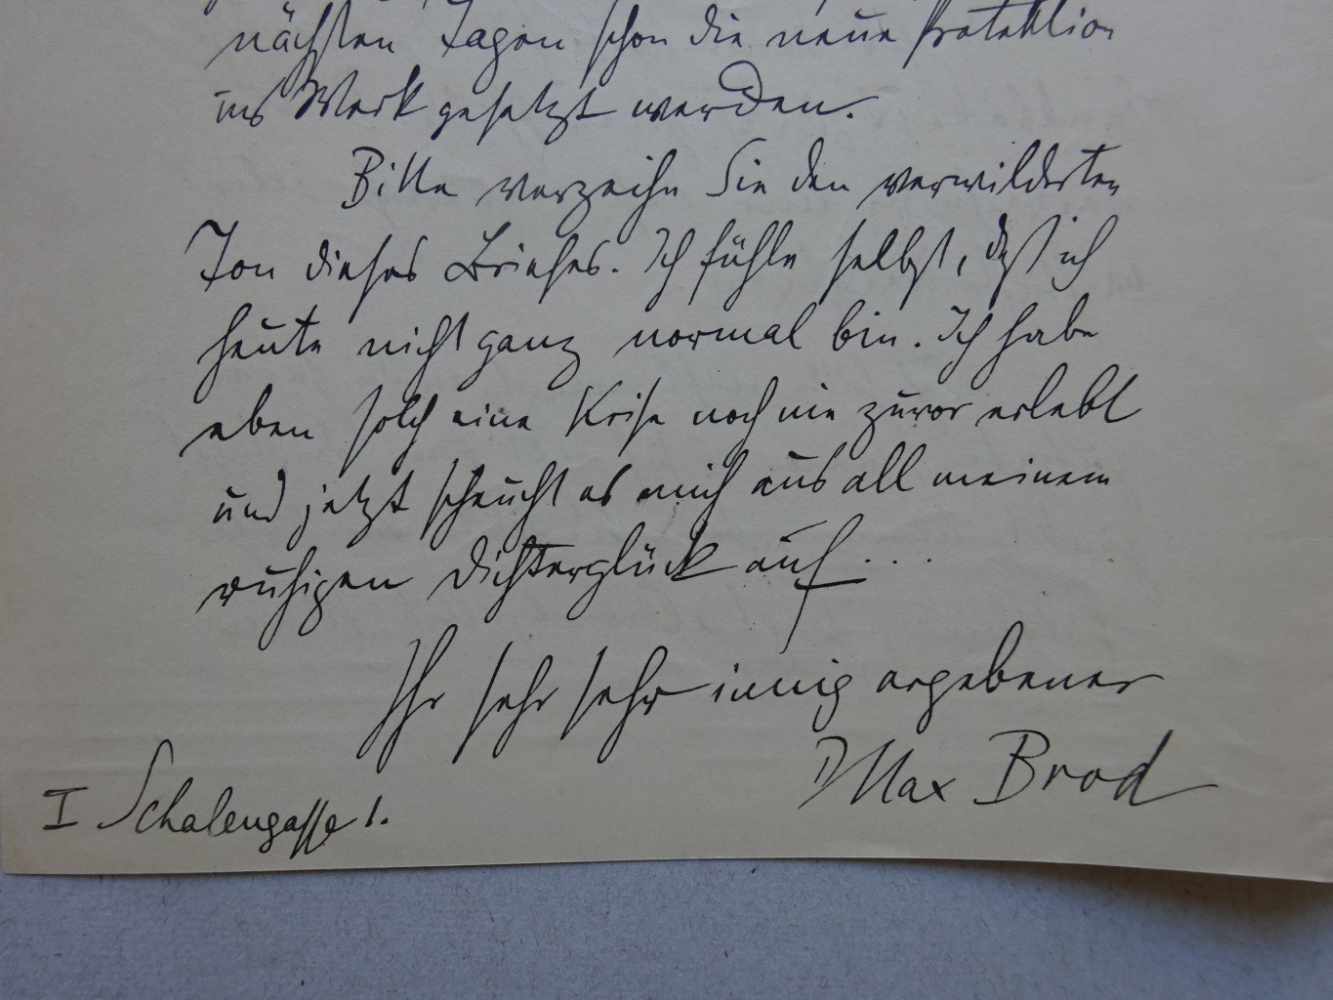 nächsten Tagen schon die neue Protektion
ins Werk gesetzt werden.
Bitte verzeihn Sie den verwilderten
Ton dieses Briefes. Ich fühle selbst, daß ich
heute nicht ganz normal bin. Ich habe
eben solch eine Krise noch nie zuvor erlebt
und jetzt scheucht es mich aus all meinem
ruhigen Dichterglück auf...
Ihr sehr sehr innig ergebener
Max Brod
I Schalengasse 1.